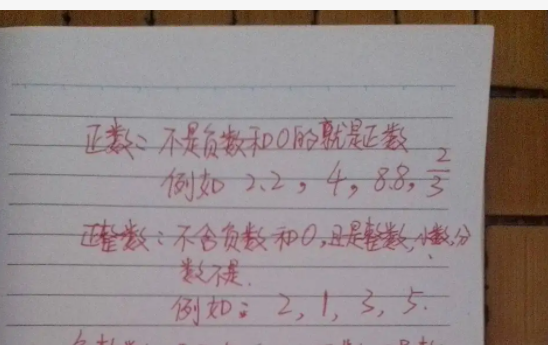 正数：不是负数和0的就是正数
例如 2.2，4，8.8，2/3
正整数：不含负数和0，且是整数，小数，分
数不是．
例如：2，1，3，5．